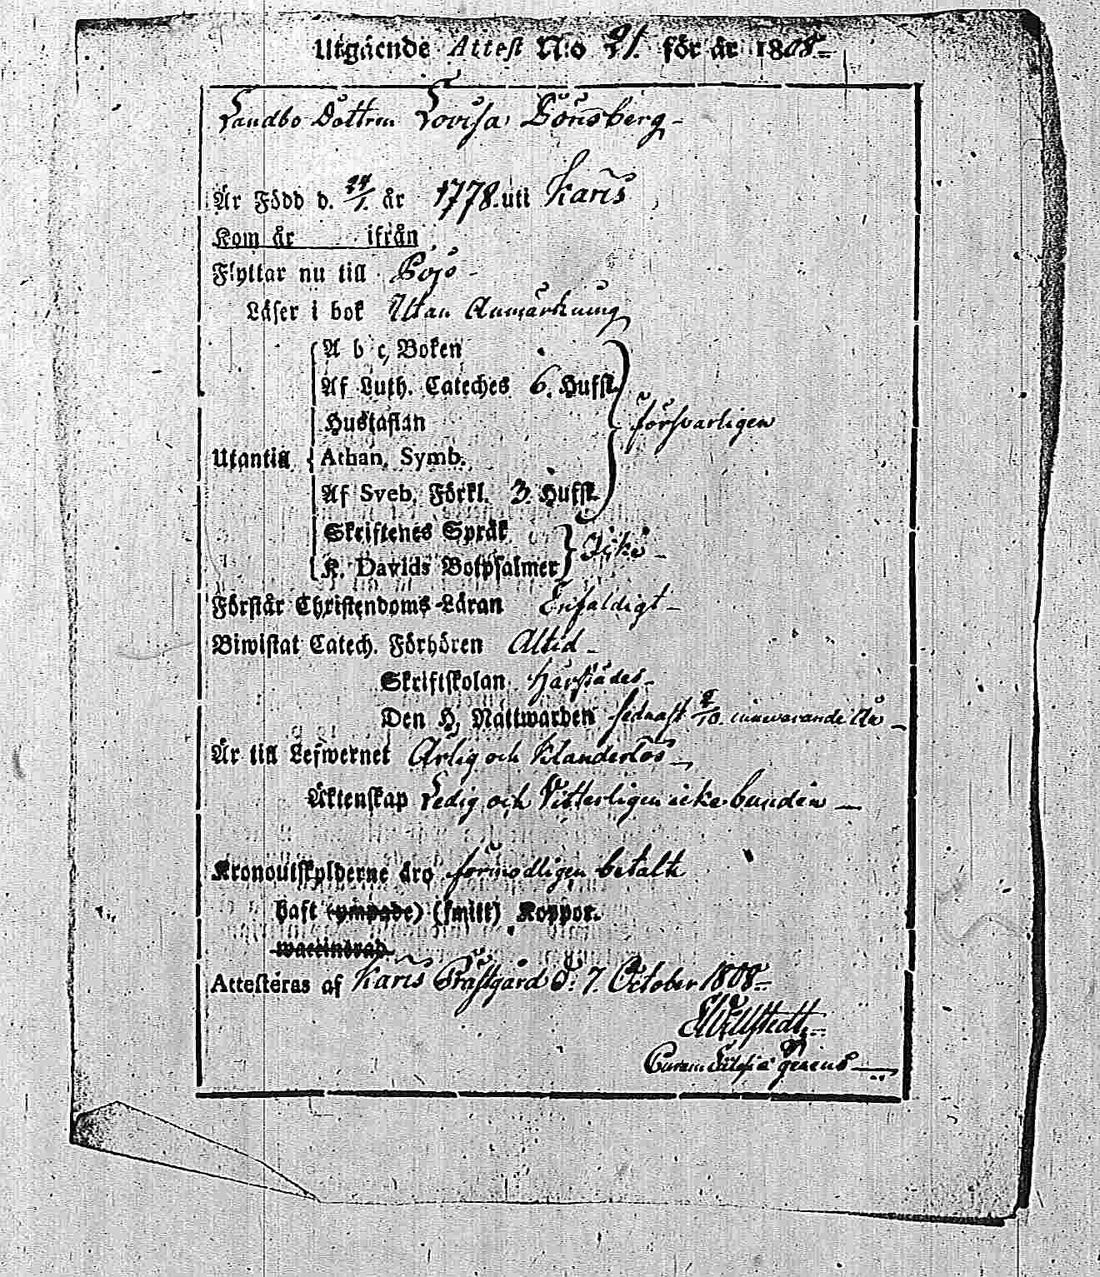 Utgående Attest N:o 21. för år 1808
Landbo Dottren Lovisa Lönsberg
Är Född d. 24/1. år 1778. uti Karis
Kom år ifrån
Flyttar nu till Pojo
Läser i bok Utan Anmärkning
A b c, Boken
Af Luth. Cateches 6. Hufst.
Hustaflan
försvarligen
Utantill Athan. Symb.
Af Sveb. Förkl. 3. Hufst.
Skriftenes Språk
Icke
K. Davids Botpsalmer
Förstår Christendoms-Läran Enfaldigt
Biwistat Catech. Förhören Altid
Skriftskolan härstädes
Den H. Nattwarden sednast 2/10. innevarande År
Är till Lefwernet Ärlig och Klanderlös
Äktenskap Ledig och Vitterligen icke bunden
Kronoutskylderne äro förmodligen betalt
haft (ympade) (smitt) Koppor.
Attesteras af Karis Prästgård d. 7. October 1808